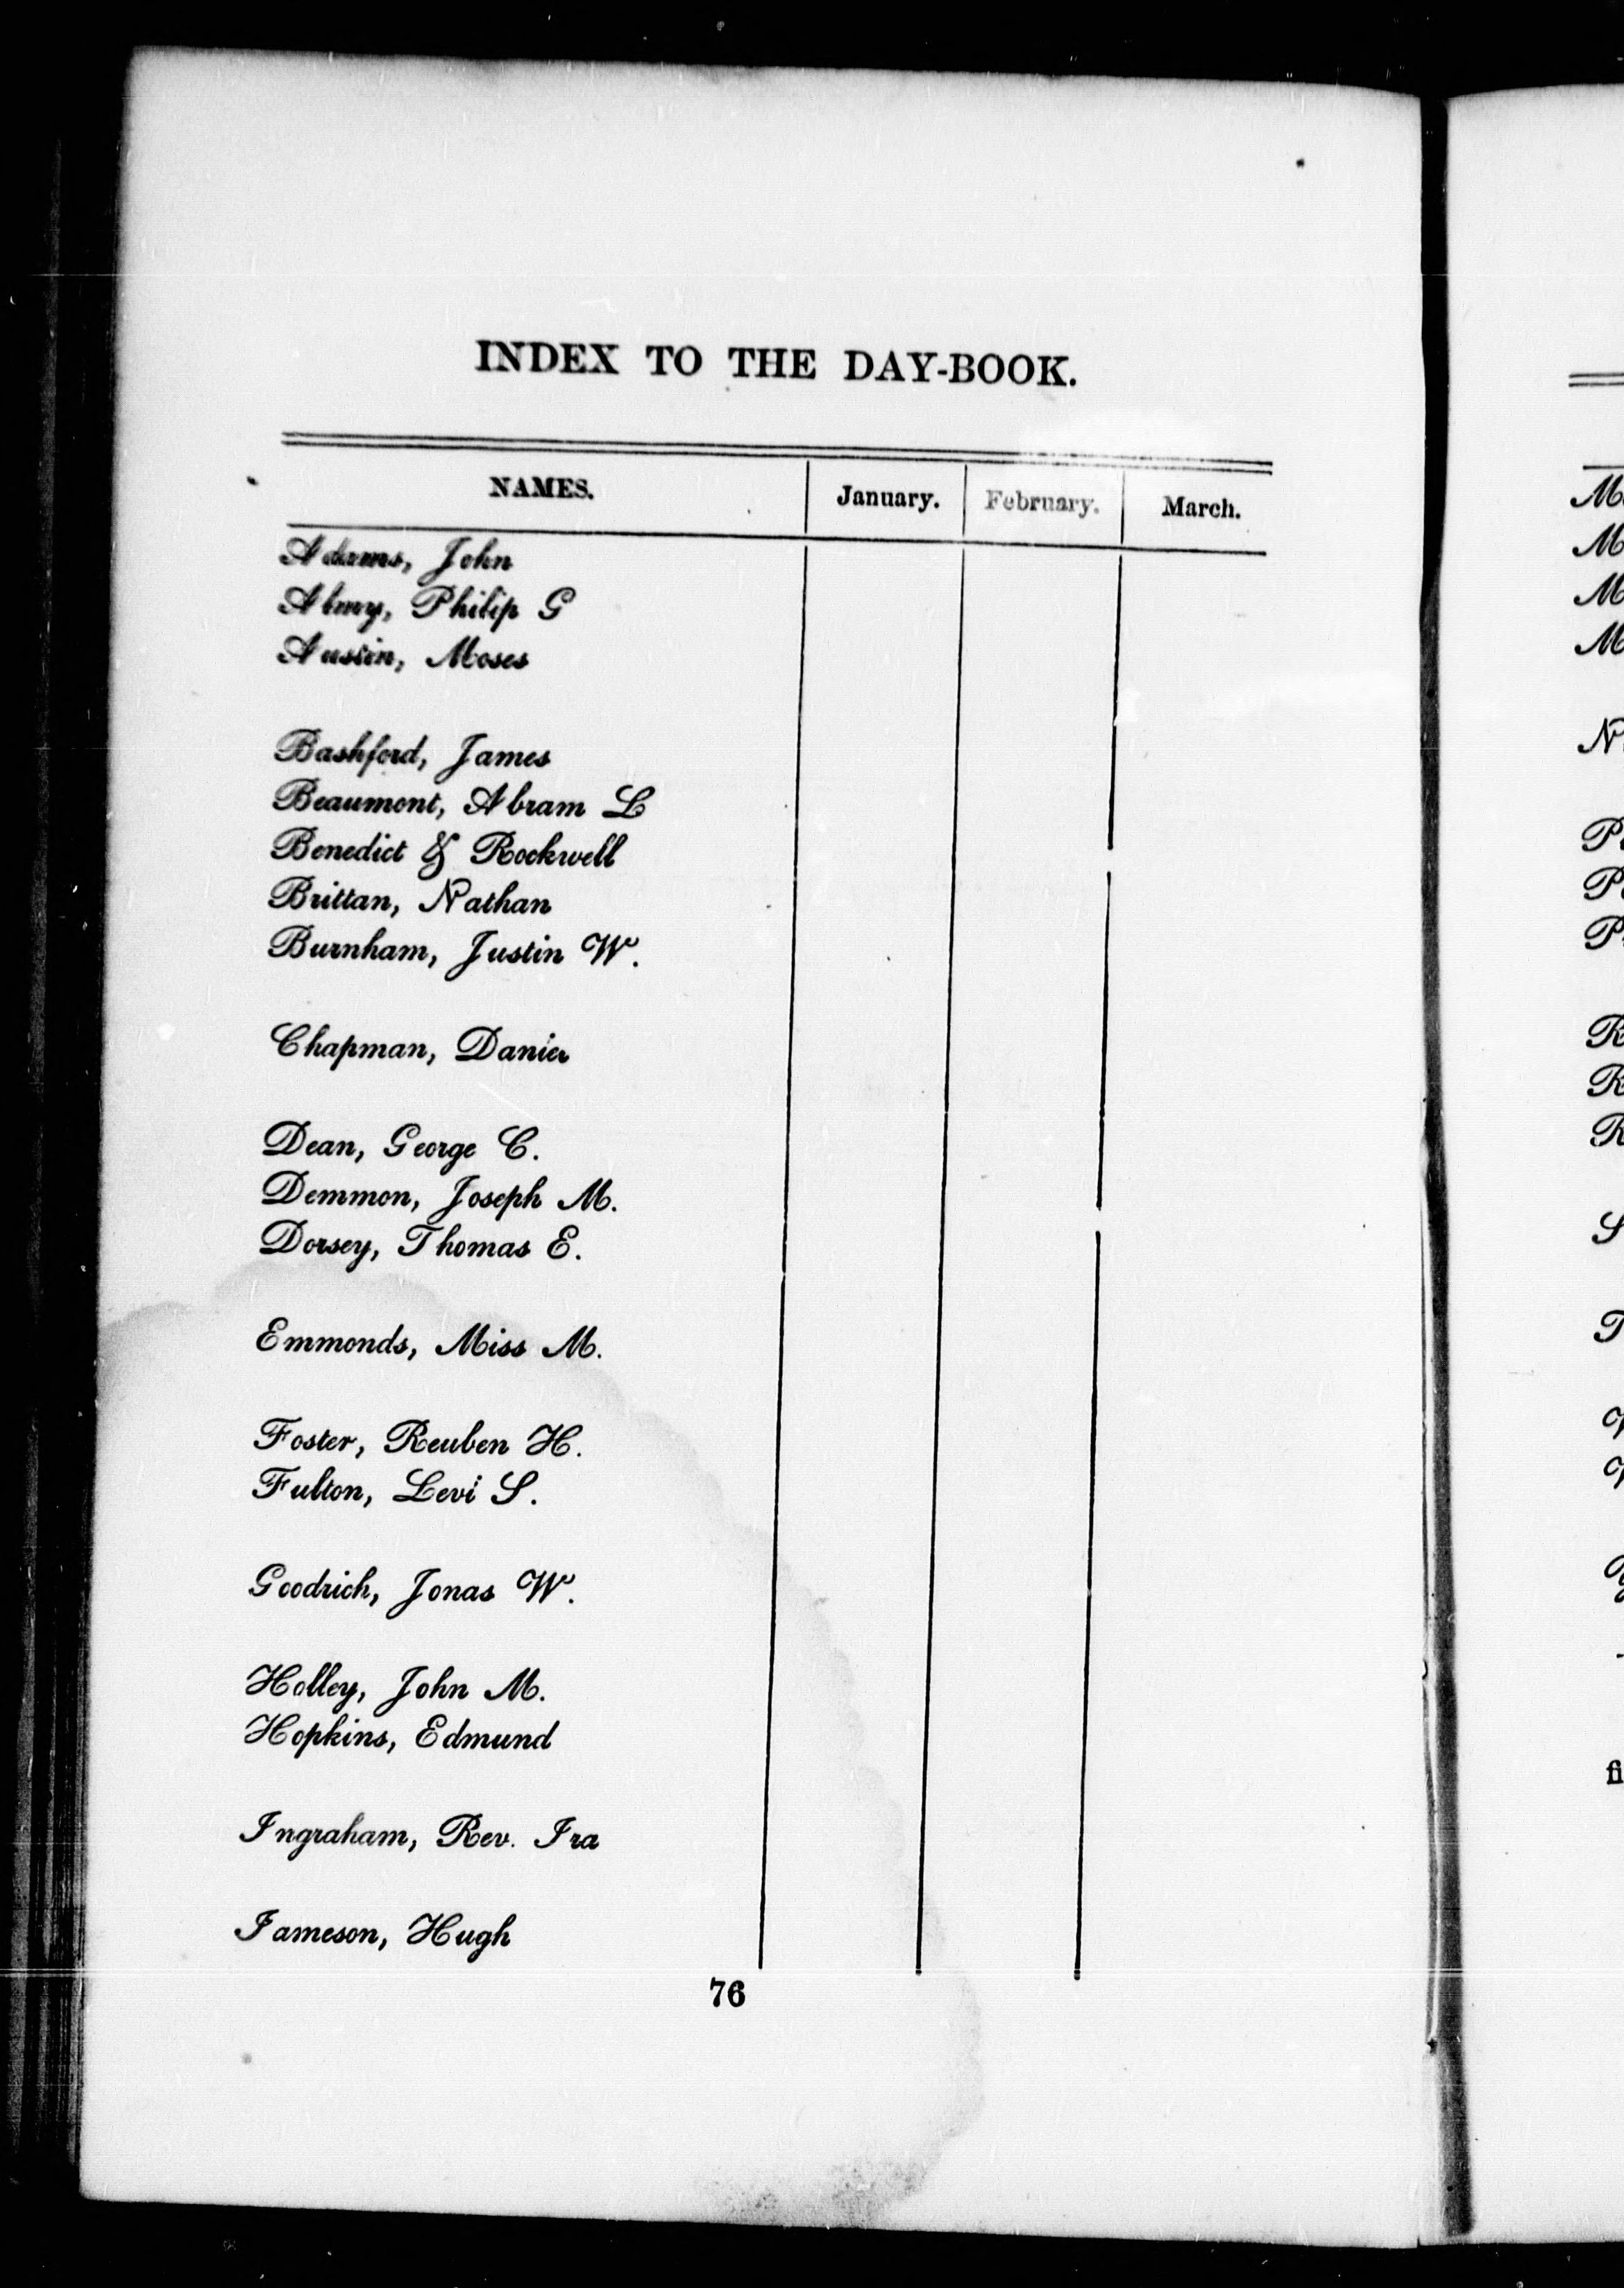 INDEX TO THE DAY-BOOK.
NAMES. January. February. March.
Adams, John
Almy, Philip G
Austin, Moses
Bashford, James
Beaumont, Abram L
Benedict & Rockwell
Brittan, Nathan
Burnham, Justin W.
Chapman, Danie
Dean, George C.
Demmon, Joseph M.
Dorsey, Thomas E.
Emmonds, Miss M.
Foster, Reuben H.
Fulton, Levi S.
Goodrich, Jonas W.
Holley, John M.
Hopkins, Edmund
Ingraham, Rev. Ira
Jameson, Hugh
76